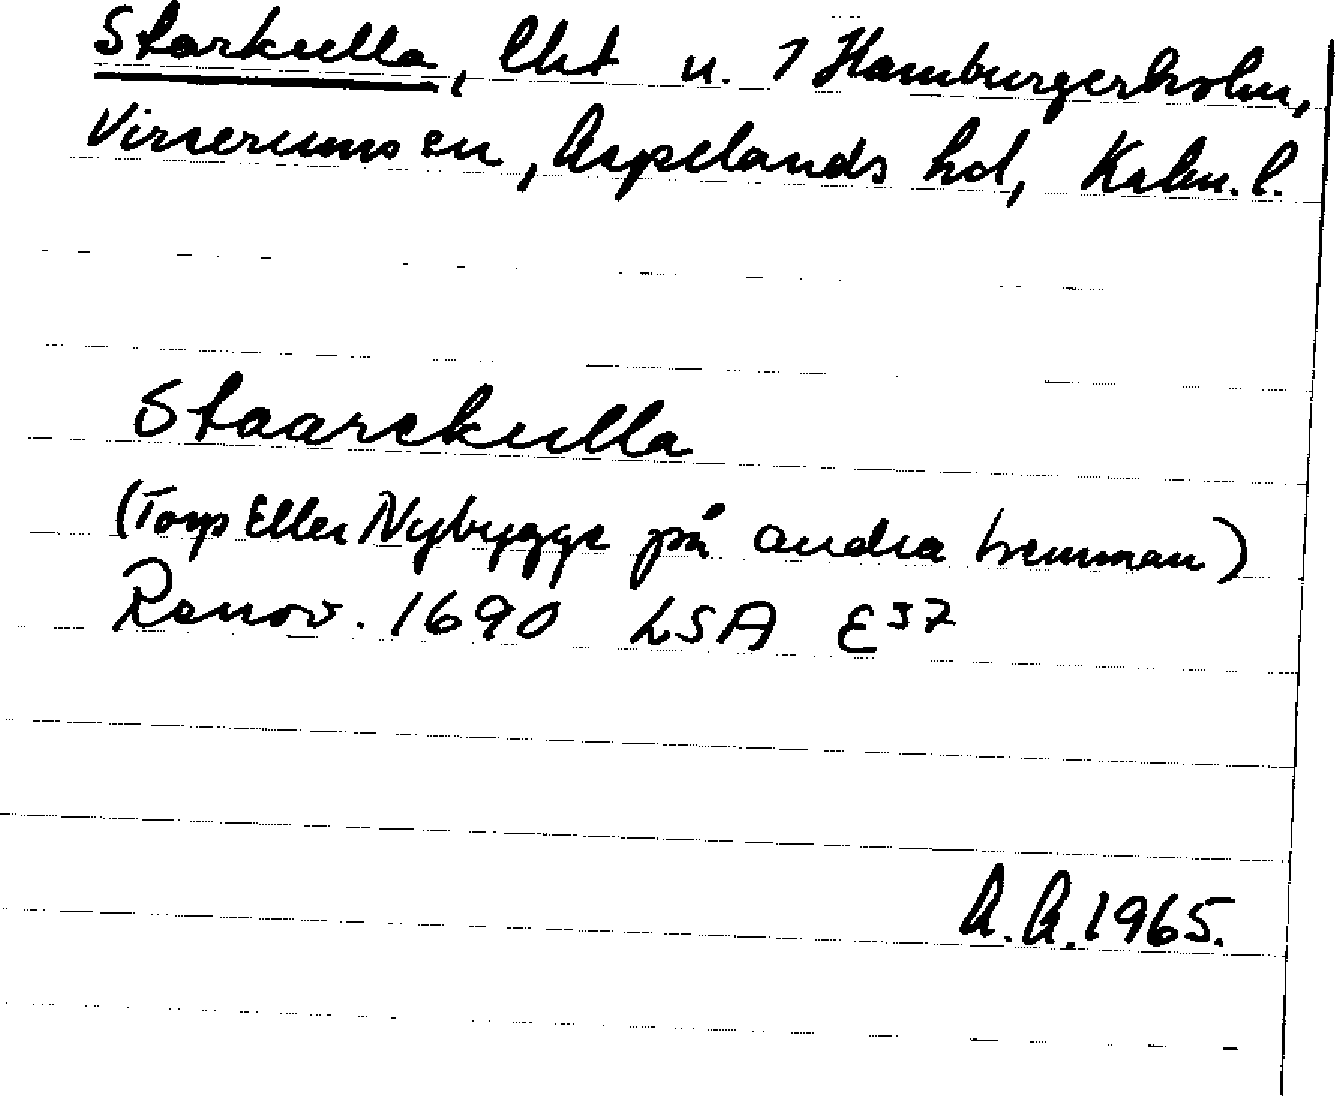 Starkulla, Cht u. 1 Hamburgerholm,
Virserums sn, Aspelands hd, Kalm. l.
Staarckulla
(Torp Eller Nybygge på andra hemman)
Renov. 1690 LSA E37
A.A. 1965.